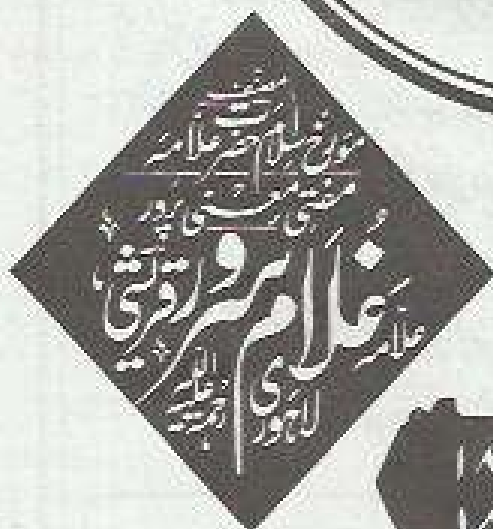 مصنف
مؤرخ اسلام حضرت علامہ
مفتی معنی پرور
علامہ غلام سرور قریشی
لاہوری رحمۃ اللہ علیہ